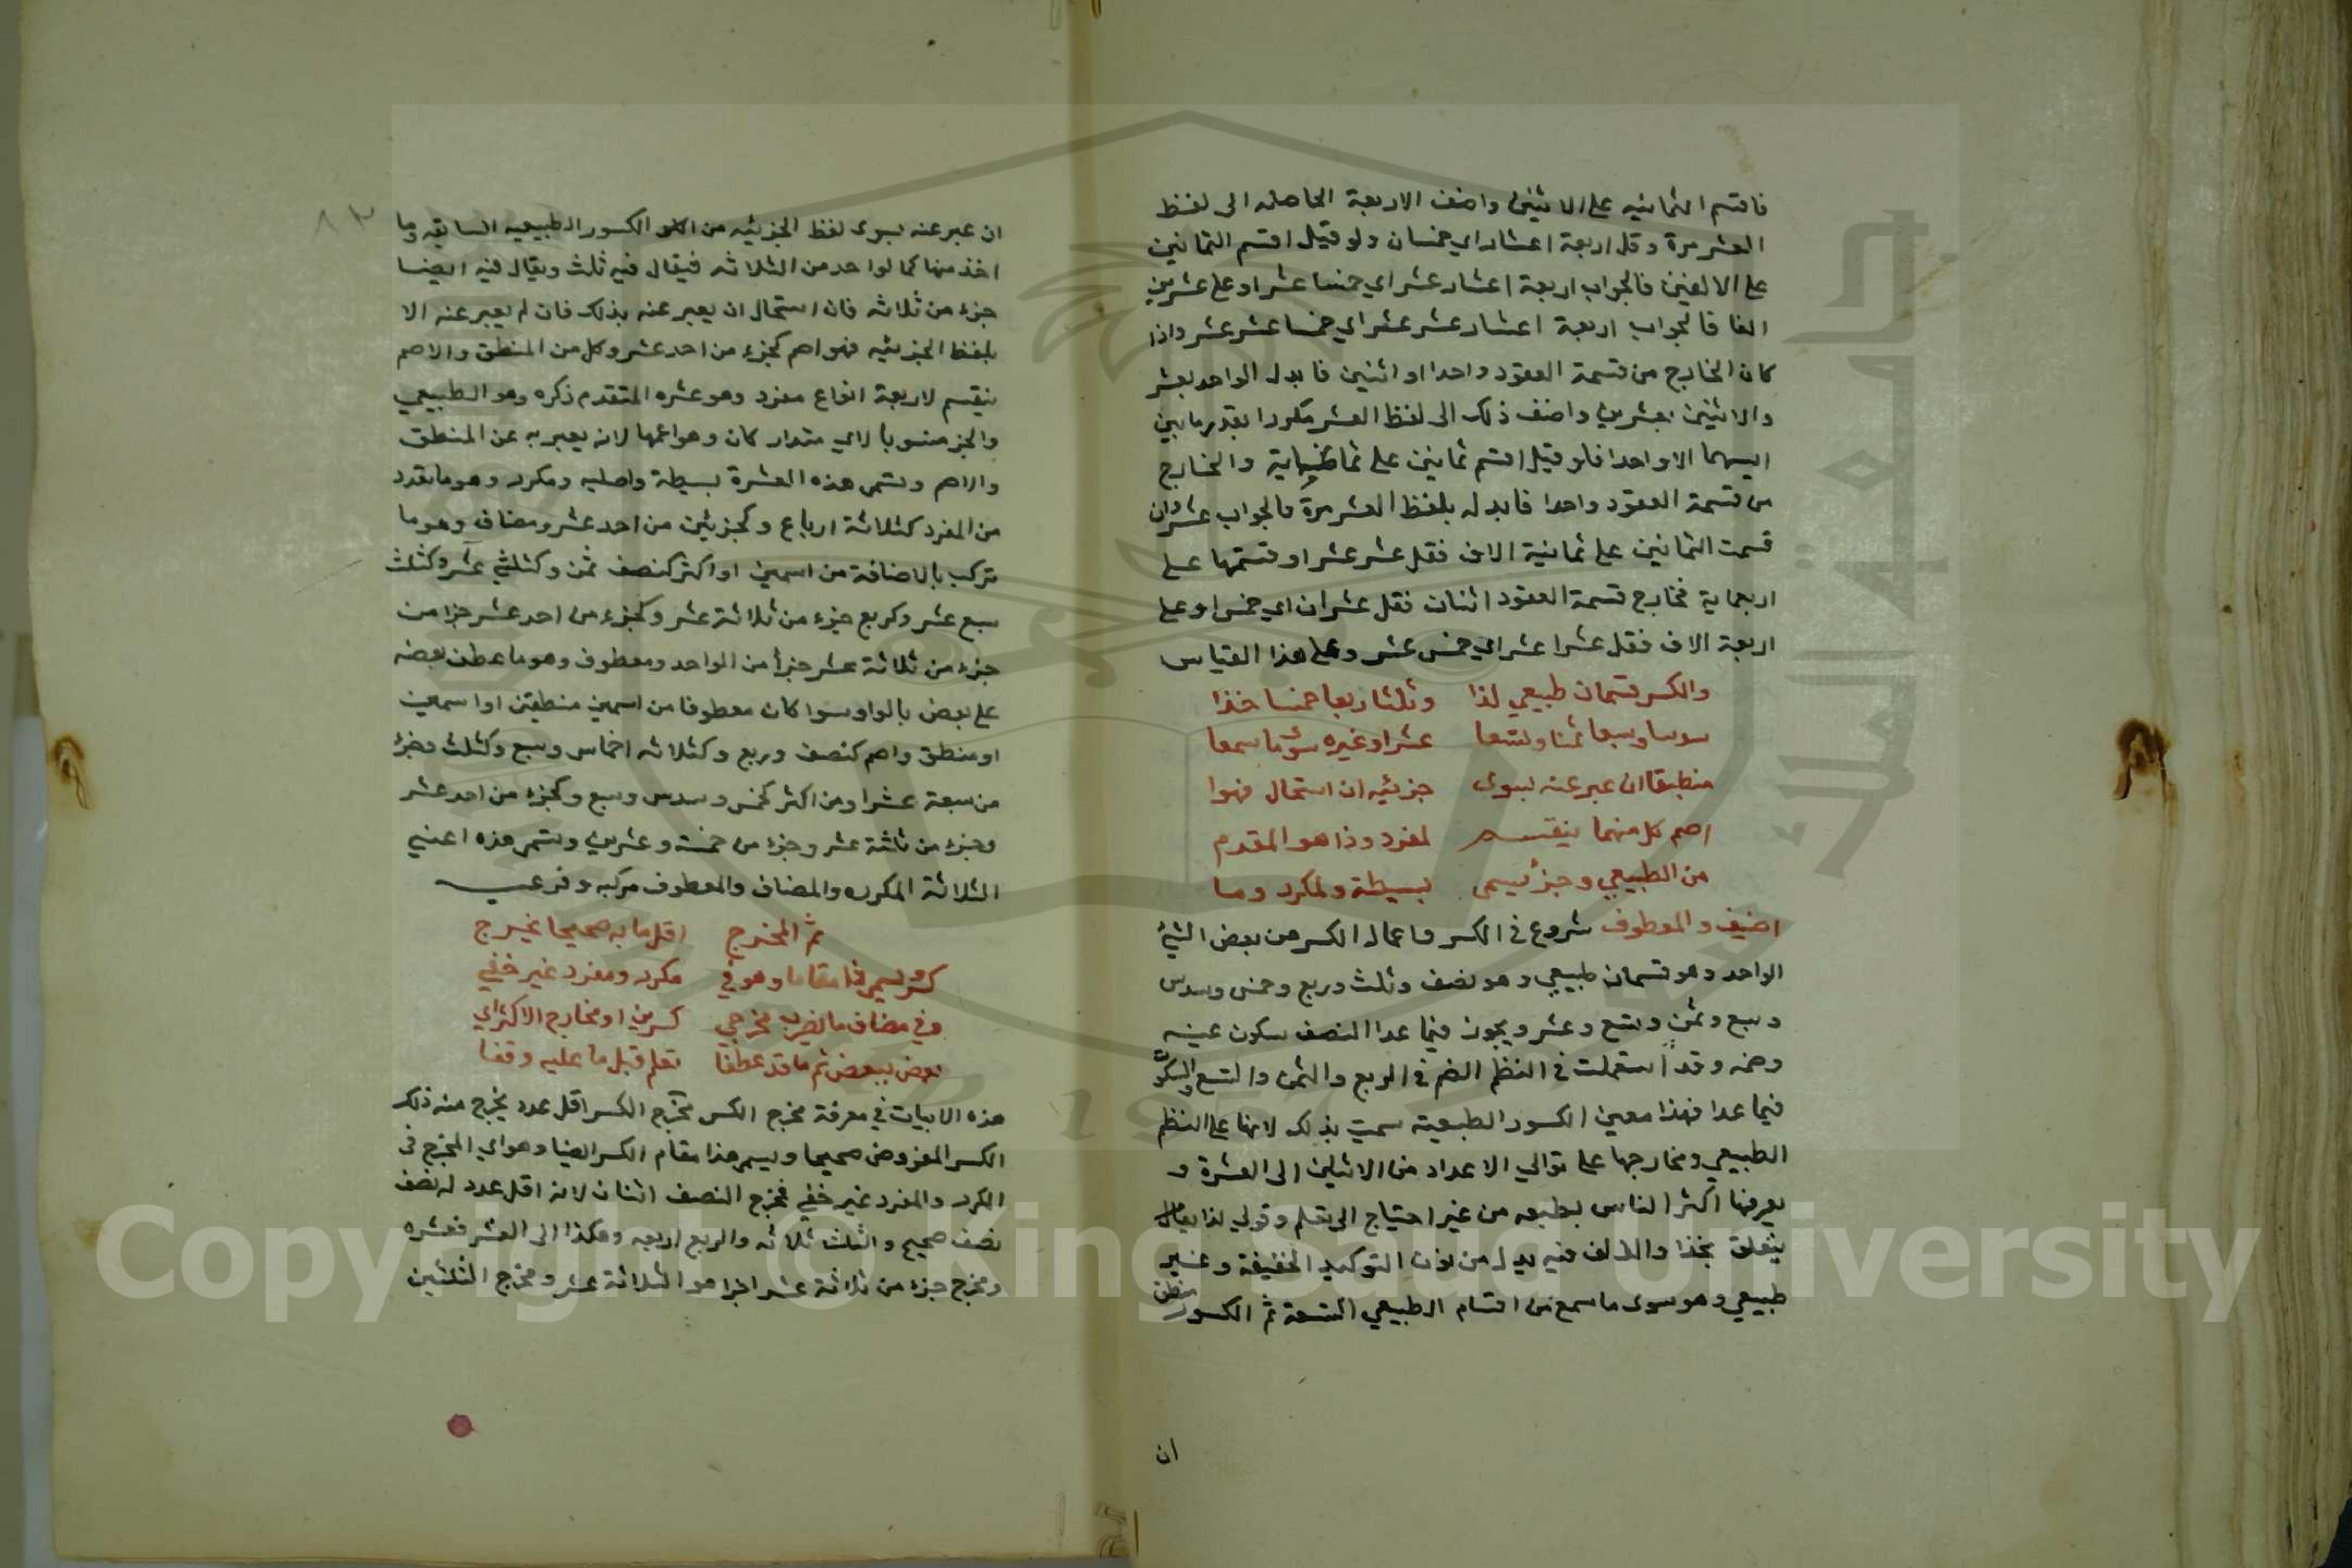 فاقسم الثمانيه على الاثنين واضف الاربعة الحاصله الى لفظ
العشر مرة وقل اربعة اعشار اي خمسان ولو قيل اقسم الثمانين
على الالفين فالجواب اربعة اعشار عشر اي خمسا عشر او على عشرين
الفا فالجواب اربعة اعشار عشر عشر اي خمسا عشر عشر واذا
كان الخارج من قسمة العقود واحدا او اثنين فابدل الواحد بعشر
والاثنين بعشرين واضف ذلك الى لفظ العشر مكررا بقدر ما بين
اسيهما الا واحدا فلو قيل اقسم ثمانين على ثمانماية والخارج
من قسمة العقود واحدا فابدله بلفظ العشر مرة فالجواب عشر وان
قسمت الثمانين على ثمانية الاف فقل عشر عشر او قسمتها على
اربعماية فخارج قسمة العقود اثنان فقل عشران اي خمس او على
اربعة الاف فقل عشرا عشر اي خمس عشر وعلى هذا القياس
والكسر قسمان طبيعي لذا وثلثا ربعا خمسا خذا
سدسا وسبعا ثمنا وتسعا عشرا وغيره سوى ما سمعا
منطقا ان عبر عنه بسوى جزئيه ان استحال فهوا
اصم كل منهما ينقسم لمفرد وذا هو المقدم
من الطبيعي وجزء يسمى بسيطة ولمكرر وما
اضيف والمعطوف شروع في الكسر واعماله الكسر من بعض الشئ
الواحد وهو قسمان طبيعي وهو نصف وثلث وربع وخمس وسدس
وسبع وثمن وتسع وعشر ويجوز فيما عدا النصف سكون عينه
وضمه وقد استعملت في النظم الضم في الربع والثمن والتسع والسكون
فيما عدا فهذا معين الكسور الطبيعية سميت بذلك لانها على النظم
الطبيعي ومخارجها على توالي الاعداد من الاثنين الى العشرة و
يعرفها اكثر الناس بطبعه من غير احتياج الى تعلم وقولي لذا
يتعلق بخذا والالف فيه بدل من نون التوكيد الخفيفة وغير
طبيعي وهو سوى ما سمع من اقسام الطبيعي التسعة ثم الكسور منطق
ان
٨٣
ان عبر عنه بسوى لفظ الجزئيه من الكسور الطبيعيه السابقه وما
اخذ منها كما لواحد من الثلاثه فيقال فيه ثلث ويقال فيه ايضا
جزء من ثلاثه فان استحال ان يعبر عنه بذلك فان لم يعبر عنه الا
بلفظ الجزئيه فهو اصم كجزء من احد عشر وكل من المنطق والاصم
ينقسم لاربعة انواع مفرد وهو عشره المتقدم ذكره وهو الطبيعي
والجز منسوبا لاي مقدار كان وهو اعمها لانه يعبر به عن المنطق
والاصم وتسمى هذه العشرة بسيطة واصليه ومكرر وهو ما تعدد
من المفرد كثلاثة ارباع وكجزئين من احد عشر ومضاف وهو ما
تركب بالاضافة من اسمين او اكثر كنصف ثمن وكثلثي عشر وكثلث
سبع عشر وكربع جزء من ثلاثة عشر وكجزء من احد عشر جزا من
جزء من ثلاثة عشر جزأ من الواحد ومعطوف وهو ما عطف بعضه
على بعض بالواو سوا كان معطوفا من اسمين منطقين او اصمين
او منطق واصم كنصف وربع وكثلاثه اخماس وسبع وكثلث وجزء
من سبعة عشر او من اكثر كخمس وسدس وسبع وكجزء من احد عشر
وجزء من ثلثة عشر وجزء من خمسة وعشرين وتسمى هذه اعني
الثلاثة المكرره والمضاف والمعطوف مركبه وفرعيه
ثم المخرج اقل ما به صحيحا يخرج
كسر يسمى ذا مقاما وهو في مكرر ومفرد غير خفي
وفي مضاف ما بضرب مخرجي كسرين او مخارج الاكثر اي
بعض ببعض ثم ما قد عطفا تعلم قبل ما عليه وقفا
هذه الابيات في معرفة مخرج الكسر مخرج الكسر اقل عدد يخرج منه ذلك
الكسر المفروض صحيحا ويسمى هذا مقام الكسر ايضا وهو اي المخرج في
المكرر والمفرد غير خفي فمخرج النصف اثنان لانه اقل عدد له نصف
نصف صحيح والثلث ثلاثه والربع اربعه وهكذا الى العشر فعشره
ومخرج جزء من ثلاثة عشر اجزا هو الثلاثة عشر ومخرج الثلثين
Copyright © King Saud University